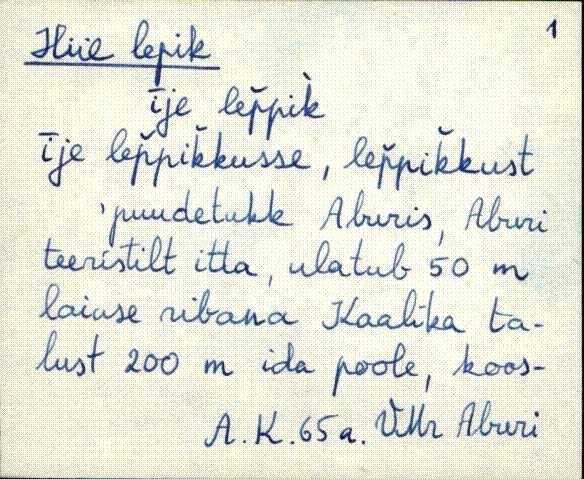 1
Hiie lepik
īje lep̆pìk
īje lep̆pik̆kusse, lep̆pik̆kust
'puudetukk Aburis, Aburi
teeristilt itta, ulatub 50 m
laiuse ribana Kaalika ta-
lust 200 m ida poole, koos-
A.K. 65 a. VMr Aburi